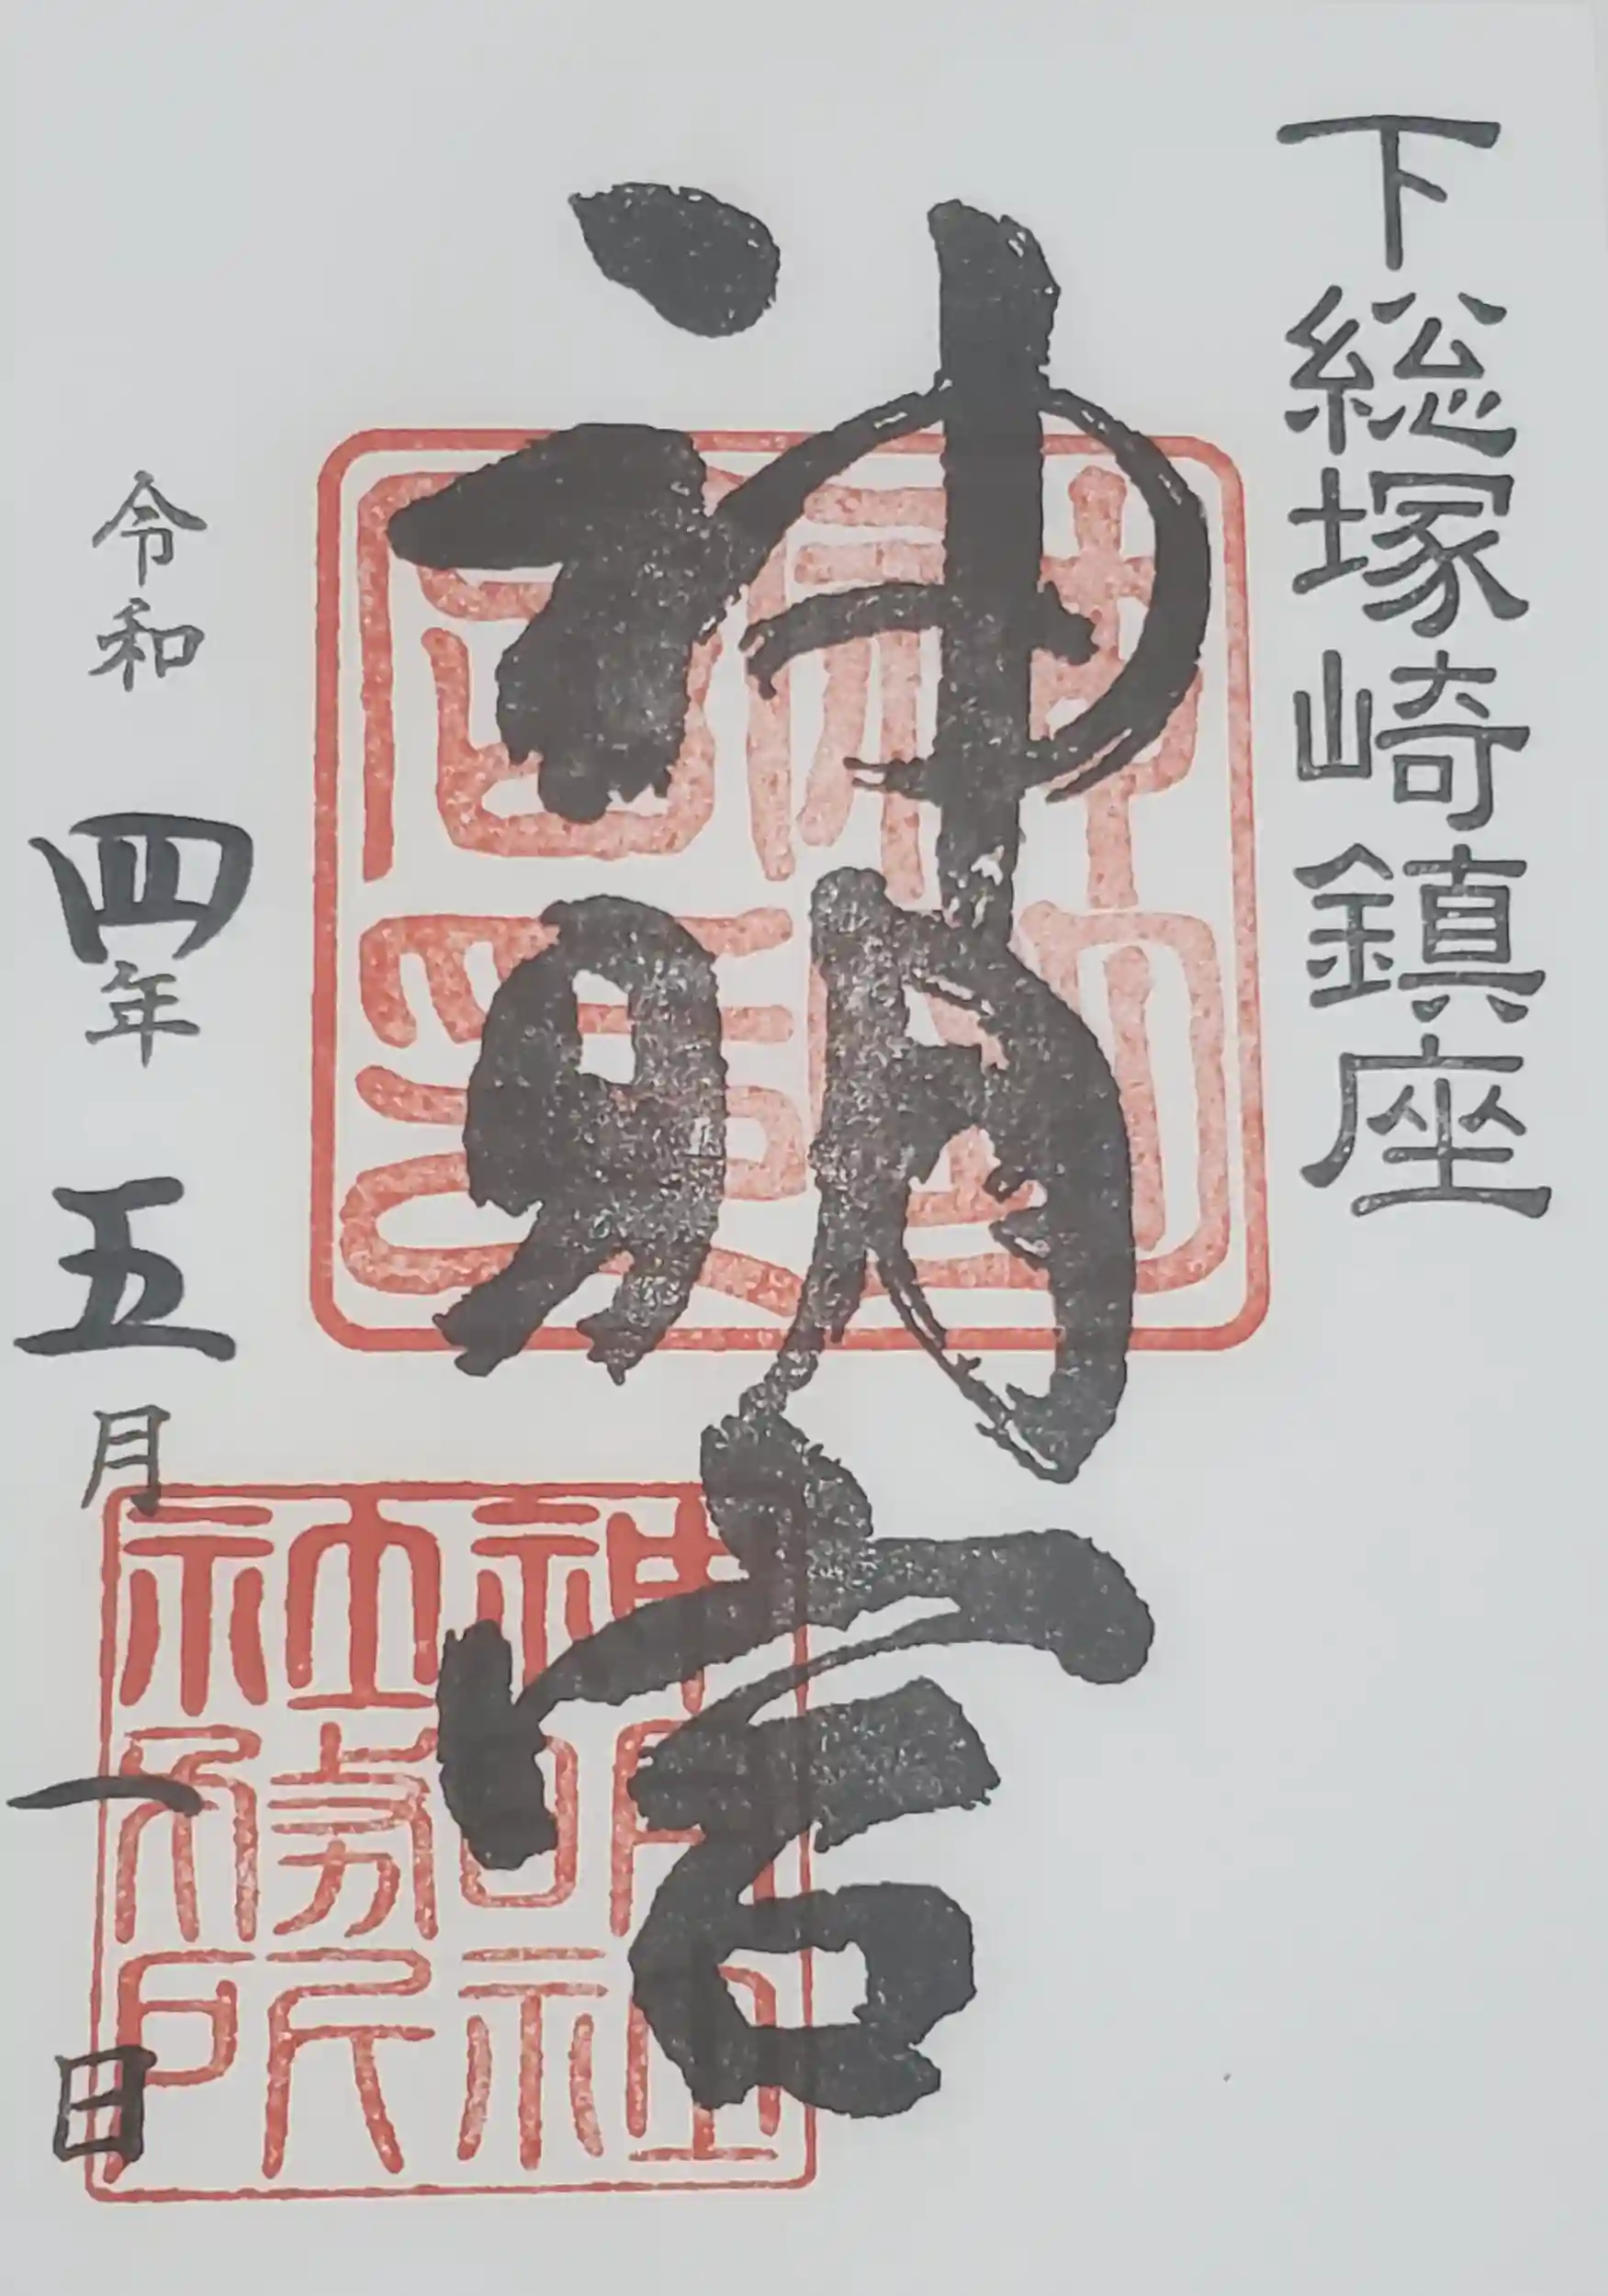 下総塚崎鎮座
神明宮
神明社社務所
令和四年五月一日